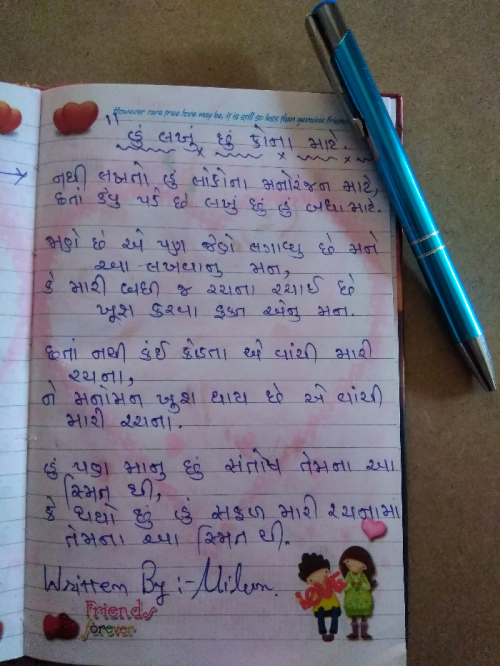 However rare true love may be, it is still so less than genuine friend
"હું લખું છું કોના માટે.
નથી લખતો હું લોકોના મનોરંજન માટે,
છતાં કેવુ પડે છે લખું છું હું બધા માટે.
જાણે છે એ પણ જેણે લગાવ્યુ છે મને
આ લખવાનુ મન,
કે મારી બધી જ રચના રચાઈ છે
ખૂશ કરવા ફક્ત એનુ મન.
છતાં નથી કંઈ કેહતા એ વાંચી મારી
રચના,
ને મનોમન ખુશ થાય છે એ વાંચી
મારી રચના.
હું પણ માનુ છું સંતોષ તેમના આ
સ્મિત થી,
કે થયો છું હું સફળ મારી રચનામાં
તેમના આ સ્મિત થી.
Written By :- Milan.
LOVE
Friends
forever